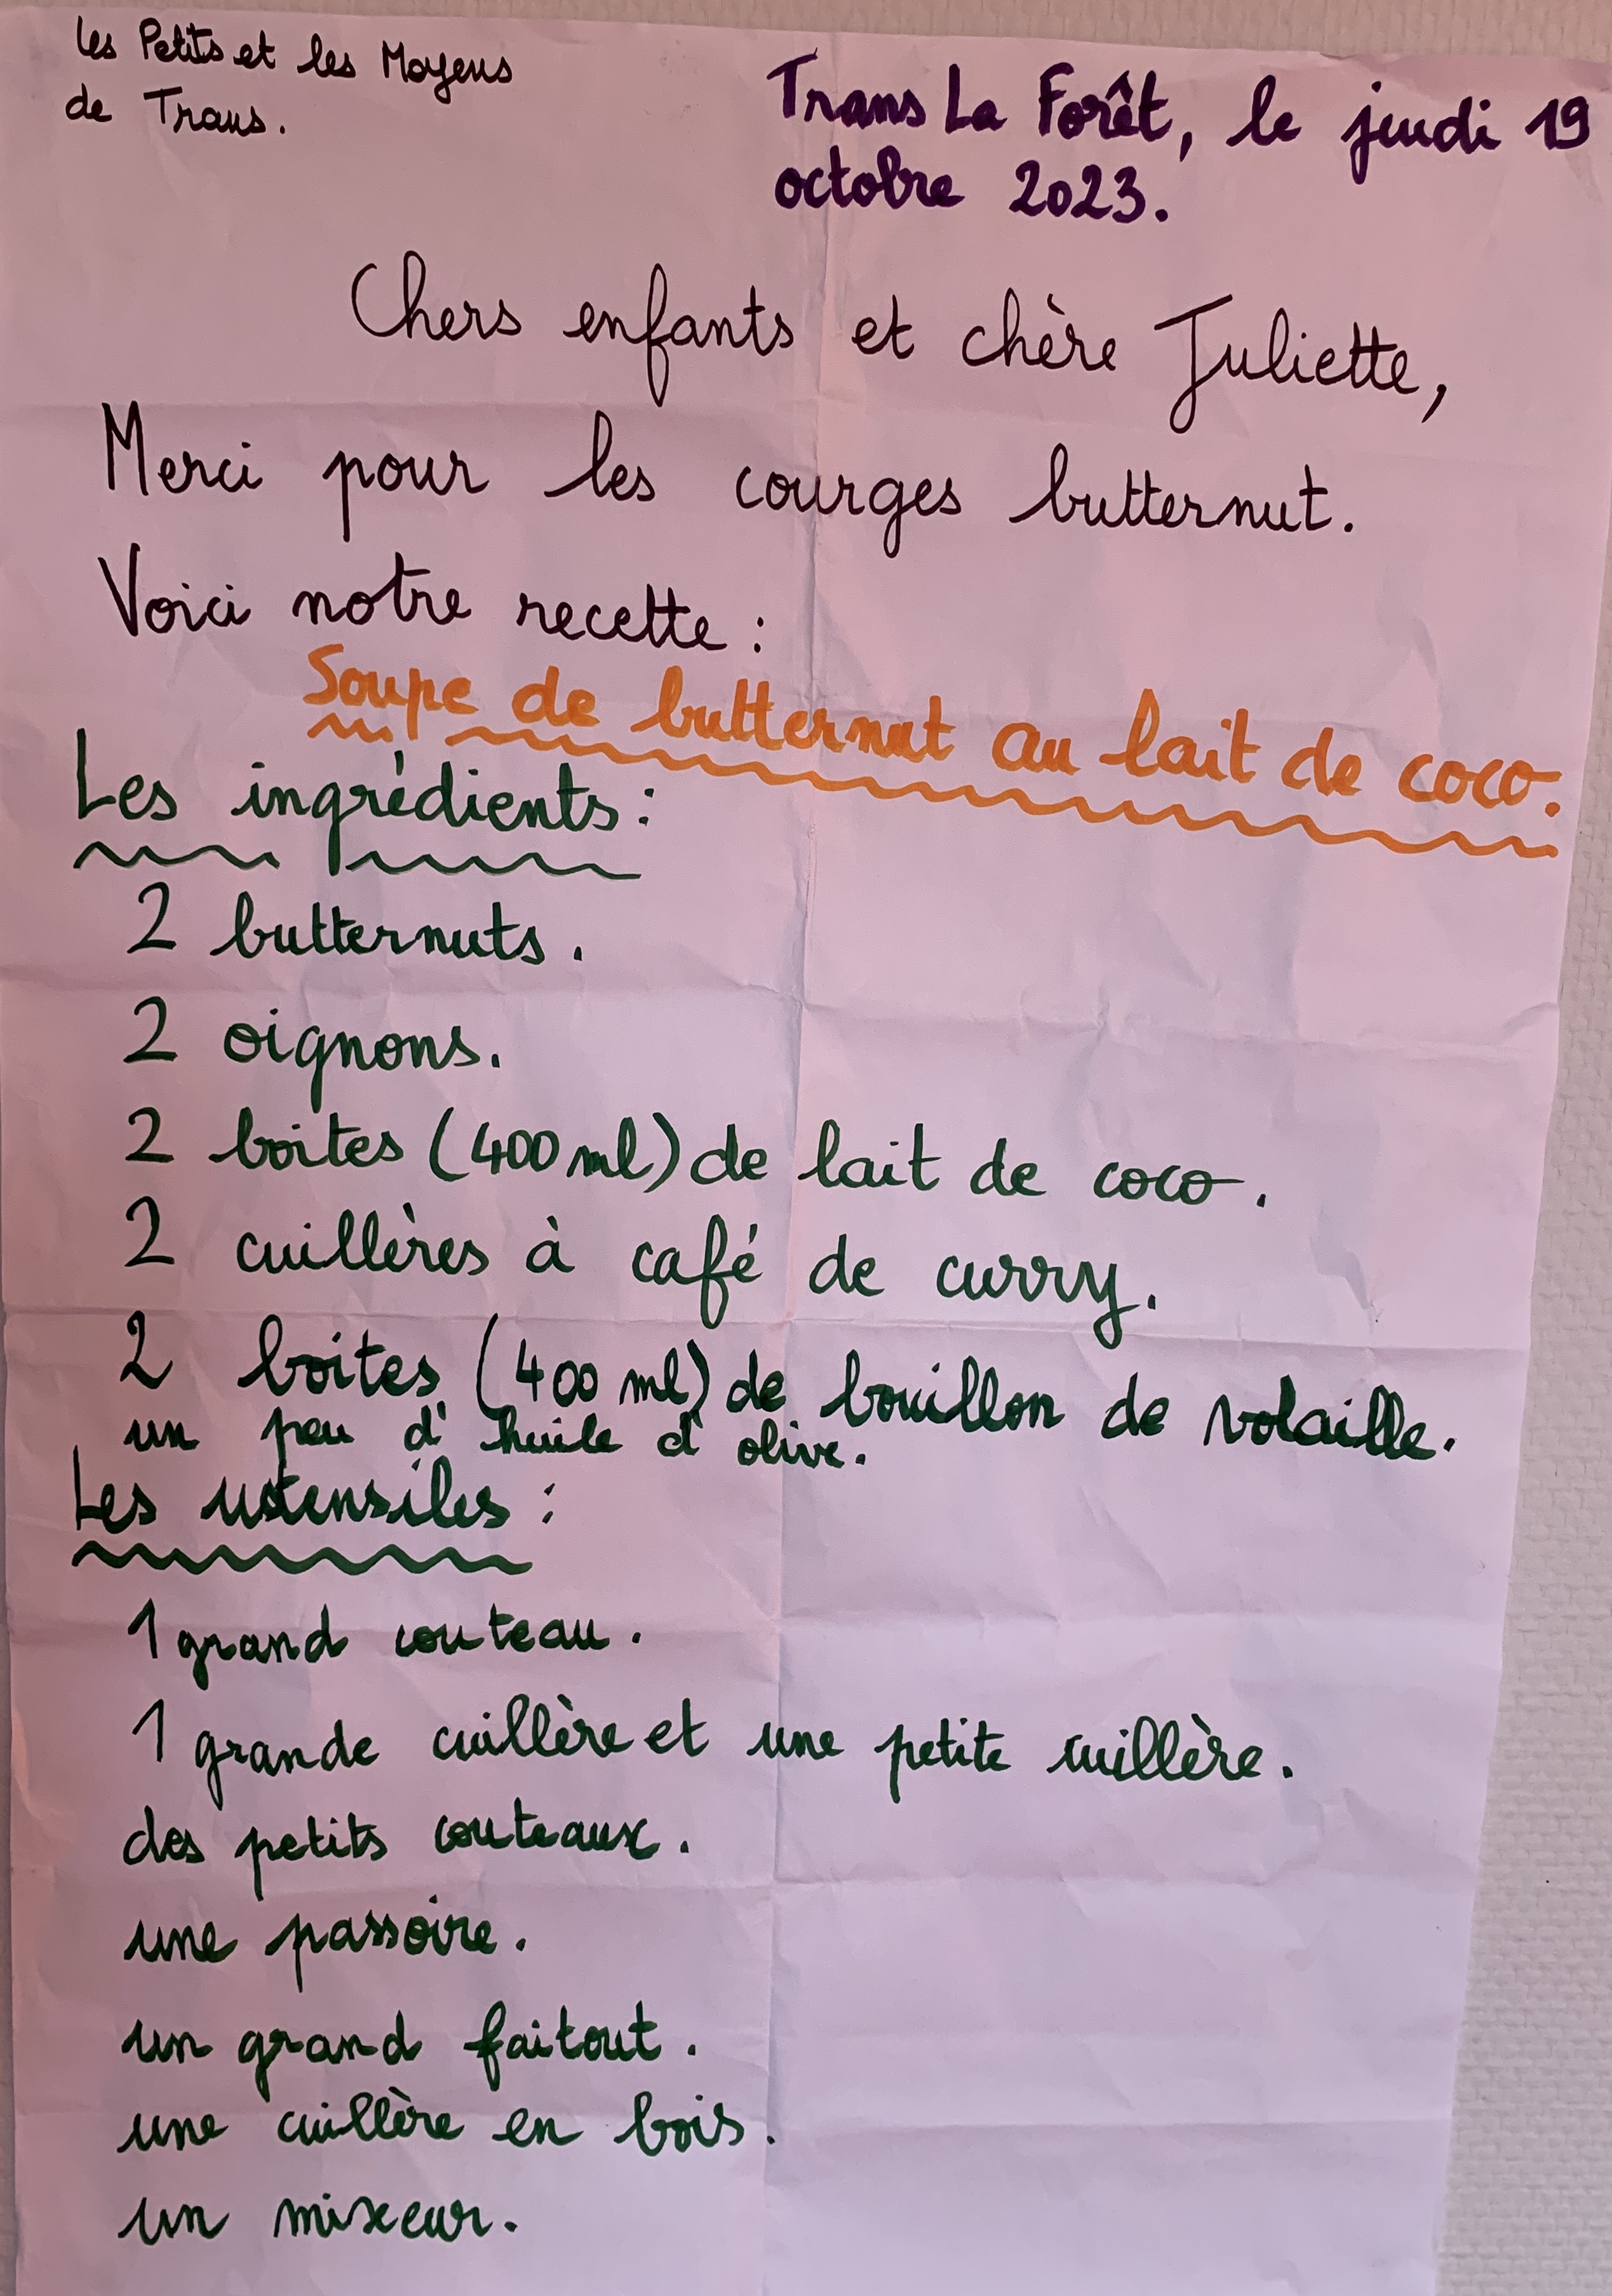 Les Petits et les Moyens
de Trans.
Trans La Forêt, le jeudi 19
octobre 2023.
Chers enfants et chère Juliette,
Merci pour les courges butternut.
Voici notre recette :
Soupe de butternut au lait de coco.
Les ingrédients :
2 butternuts.
2 oignons.
2 boites (400 ml) de lait de coco.
2 cuillères à café de curry.
2 boites (400 ml) de bouillon de volaille.
un peu d'huile d'olive.
Les ustensiles :
1 grand couteau.
1 grande cuillère et une petite cuillère.
des petits couteaux.
une passoire.
un grand faitout.
une cuillère en bois.
un mixeur.